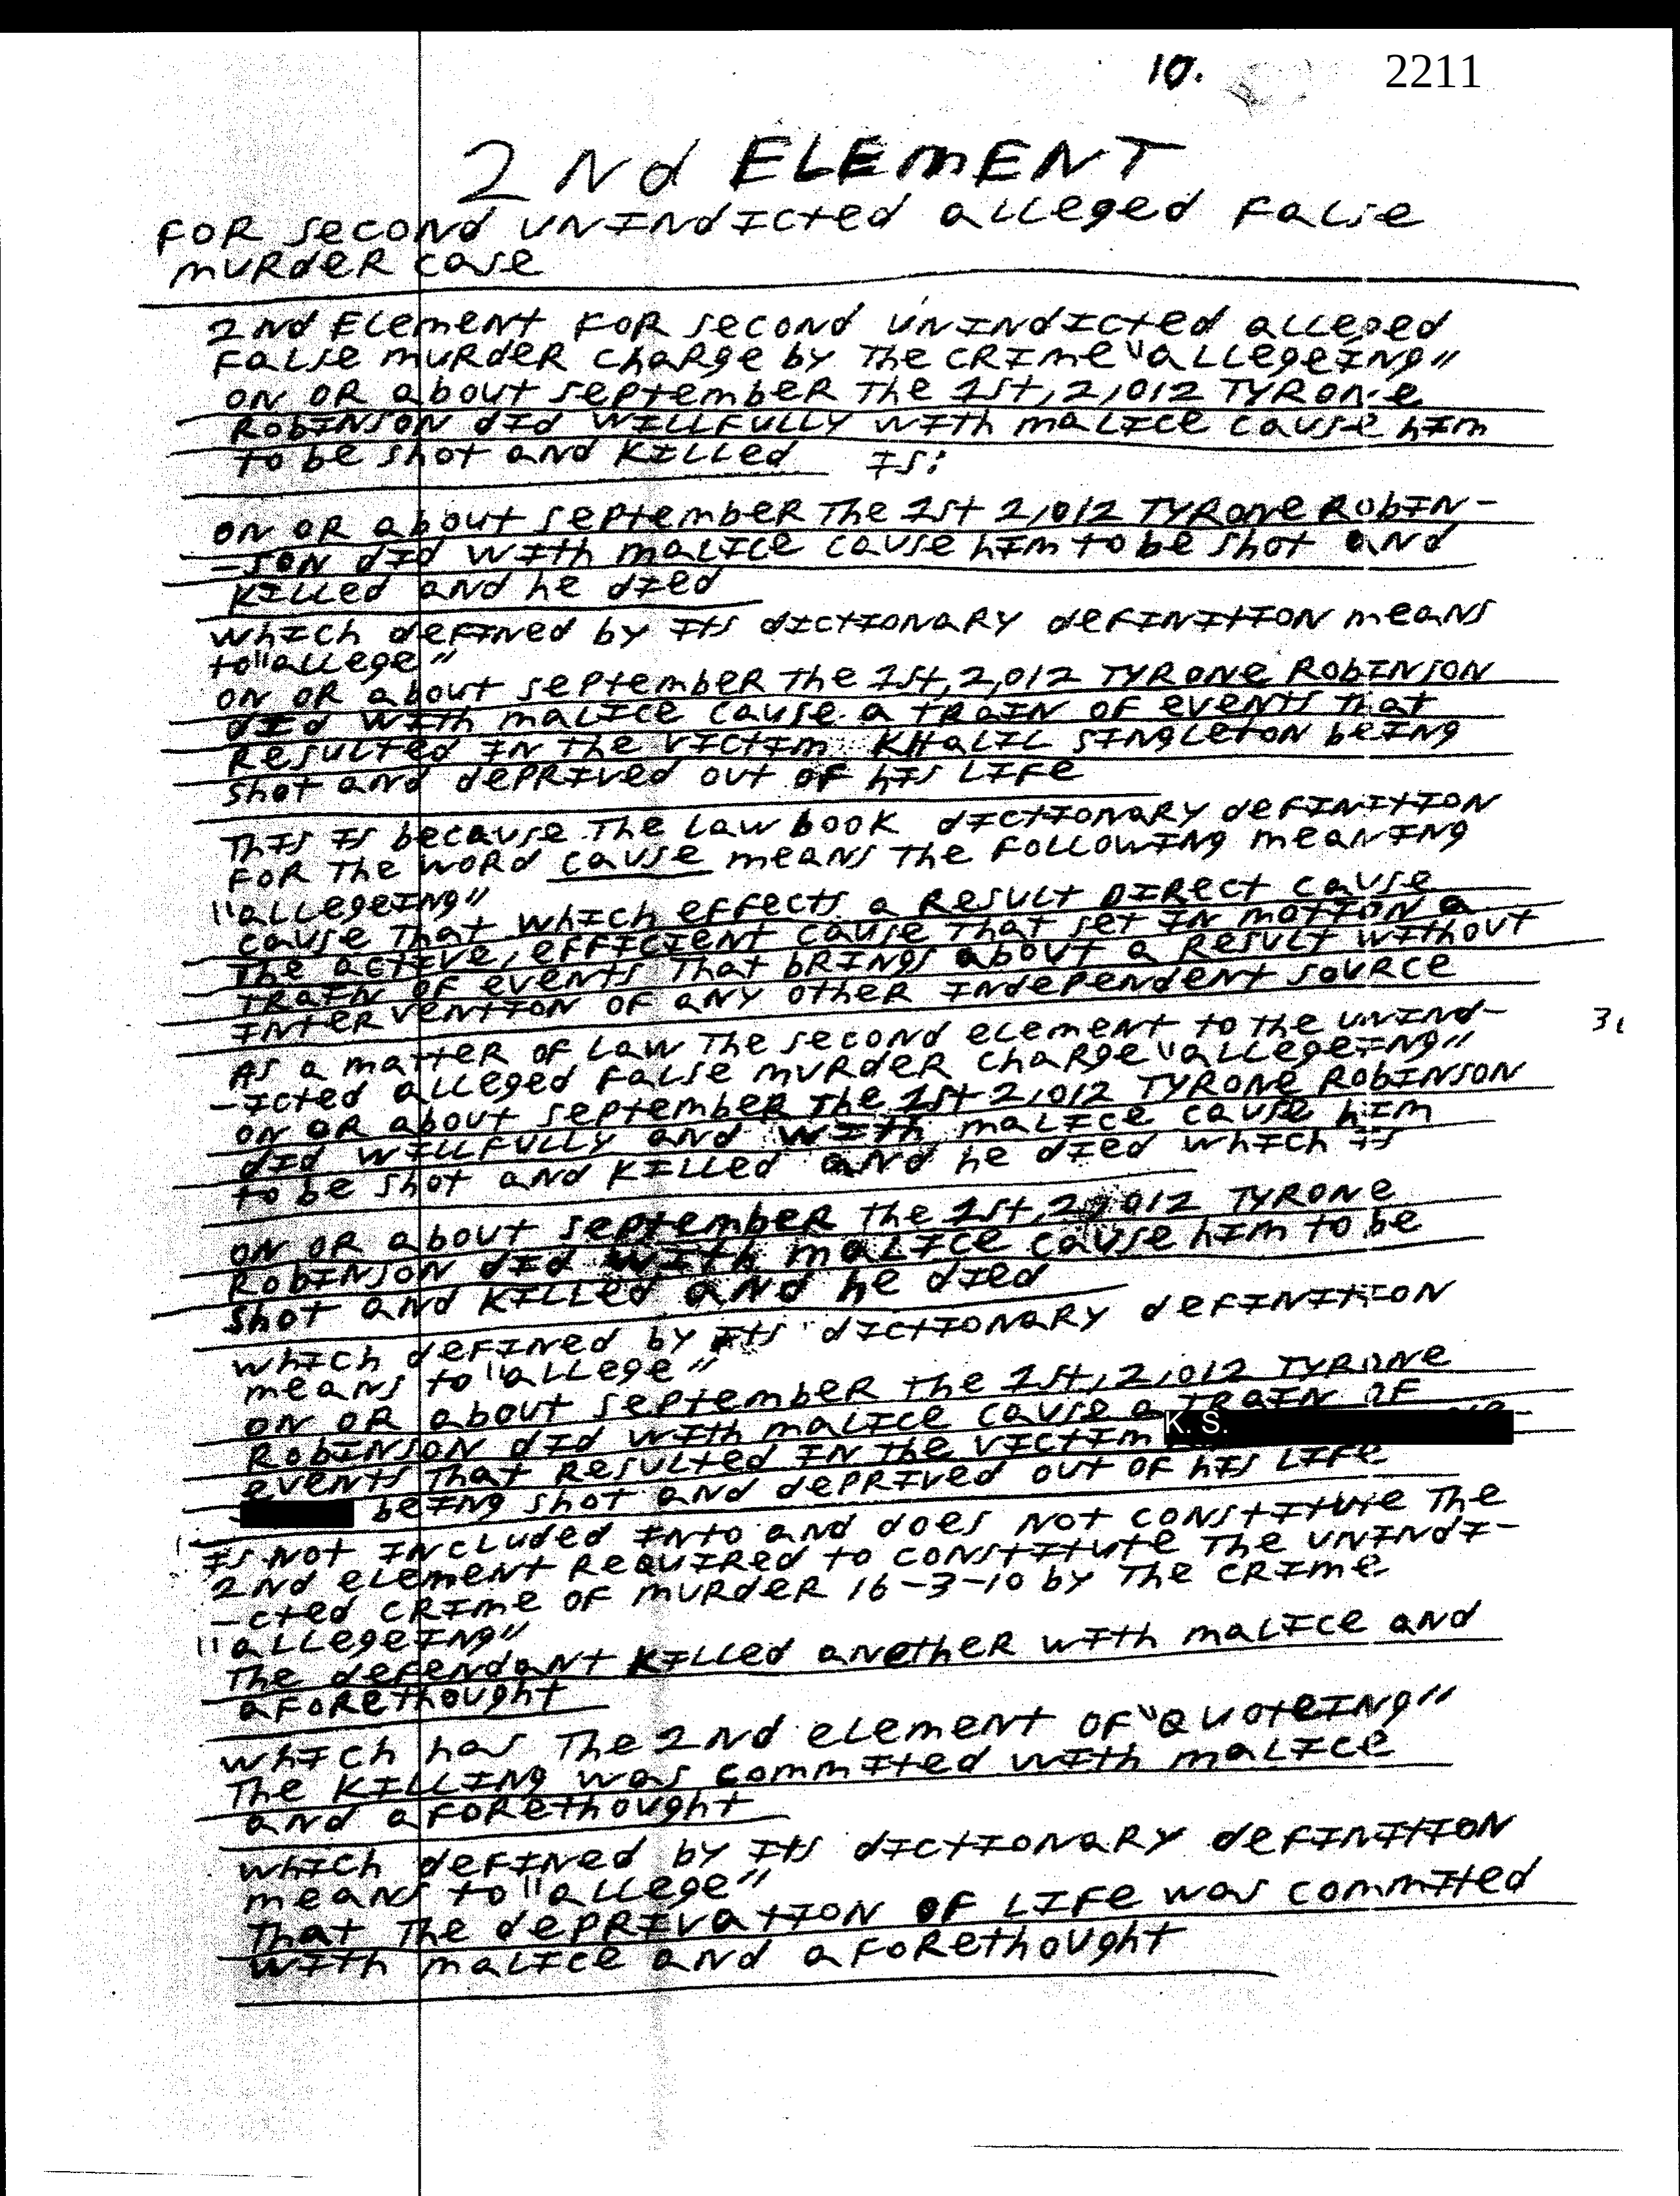 10. 2211
2Nd ELEMENT
FOR second UNINdIcted aLLeged FaLse
muRdeR case
2Nd ELement FOR second UNINdIcted aLLeged
FaLse muRdeR chaRge by The CRIme "aLLegeING"
ON OR about septembeR The 1st, 2,012 TYRONe
RobINSON dId WILLFULLY WIth maLIce cause hIm
to be shot and KILLed IS:
ON OR about septembeR The 1st 2,012 TYRONe RobIN-
-SON dId WIth maLIce cause hIm to be shot and
KILLed and he dIed
WhIch deFINed by Its dIctIONaRY deFINItION means
to "aLLege"
ON OR about septembeR The 1st, 2,012 TYRONe RobINSON
dId WIth maLIce cause a tRaIN OF eveNts That
ResuLted IN The VIctIm KHaLIL SINgLetON beINg
shot and dePRIved out OF hIs LIFe
ThIs Is because The Law book dIctIONaRY deFINItION
FOR The WORd cause means The FOLLOWINg meaNINg
"aLLegeINg"
cause That WhIch eFFects a ResuLt DIRect cause
The actIve, eFFIcIeNt cause That set IN motION a
tRaIN OF eveNts That bRINgs about a ResuLt WIthout
INteRveNtION OF aNY otheR INdepeNdeNt SOURce
As a matteR OF Law The second eLemeNt to the UNINd-
-Icted aLLeged FaLse muRdeR chaRge "aLLegeINg"
ON OR about septembeR The 1st 2,012 TYRONe RobINSON
dId WILLFULLY and WIth maLIce cause hIm
to be shot and KILLed and he dIed WhIch Is
ON OR about septembeR The 1st, 2,012 TYRONe
RobINSON dId WIth maLIce cause hIm to be
shot and KILLed aNd he dIed
WhIch deFINed by Its dIctIONaRY deFINItION
means to "aLLege"
ON OR about septembeR The 1st, 2,012 TYRONe
RobINSON dId WIth maLIce cause a tRaIN OF
eveNts That ResuLted IN the VIctIm K. S.
beINg shot aNd dePRIved out OF hIs LIFe
Is Not INcLuded INto and does Not coNstItute The
2Nd eLemeNt ReQUIRed to coNstItute The UNINdI-
-cted CRIme OF muRdeR 16-3-10 by The CRIme
"aLLegeINg"
The deFeNdaNt KILLed aNotheR WIth maLIce and
aFORethought
WhIch has The 2Nd eLemeNt OF "QuoteINg"
The KILLINg was commIted WIth maLIce
aNd aFORethought
WhIch deFINed by Its dIctIONaRY deFINItION
means to "aLLege"
That The dePRIvatION OF LIFe was commIted
WIth maLIce aNd aFORethought